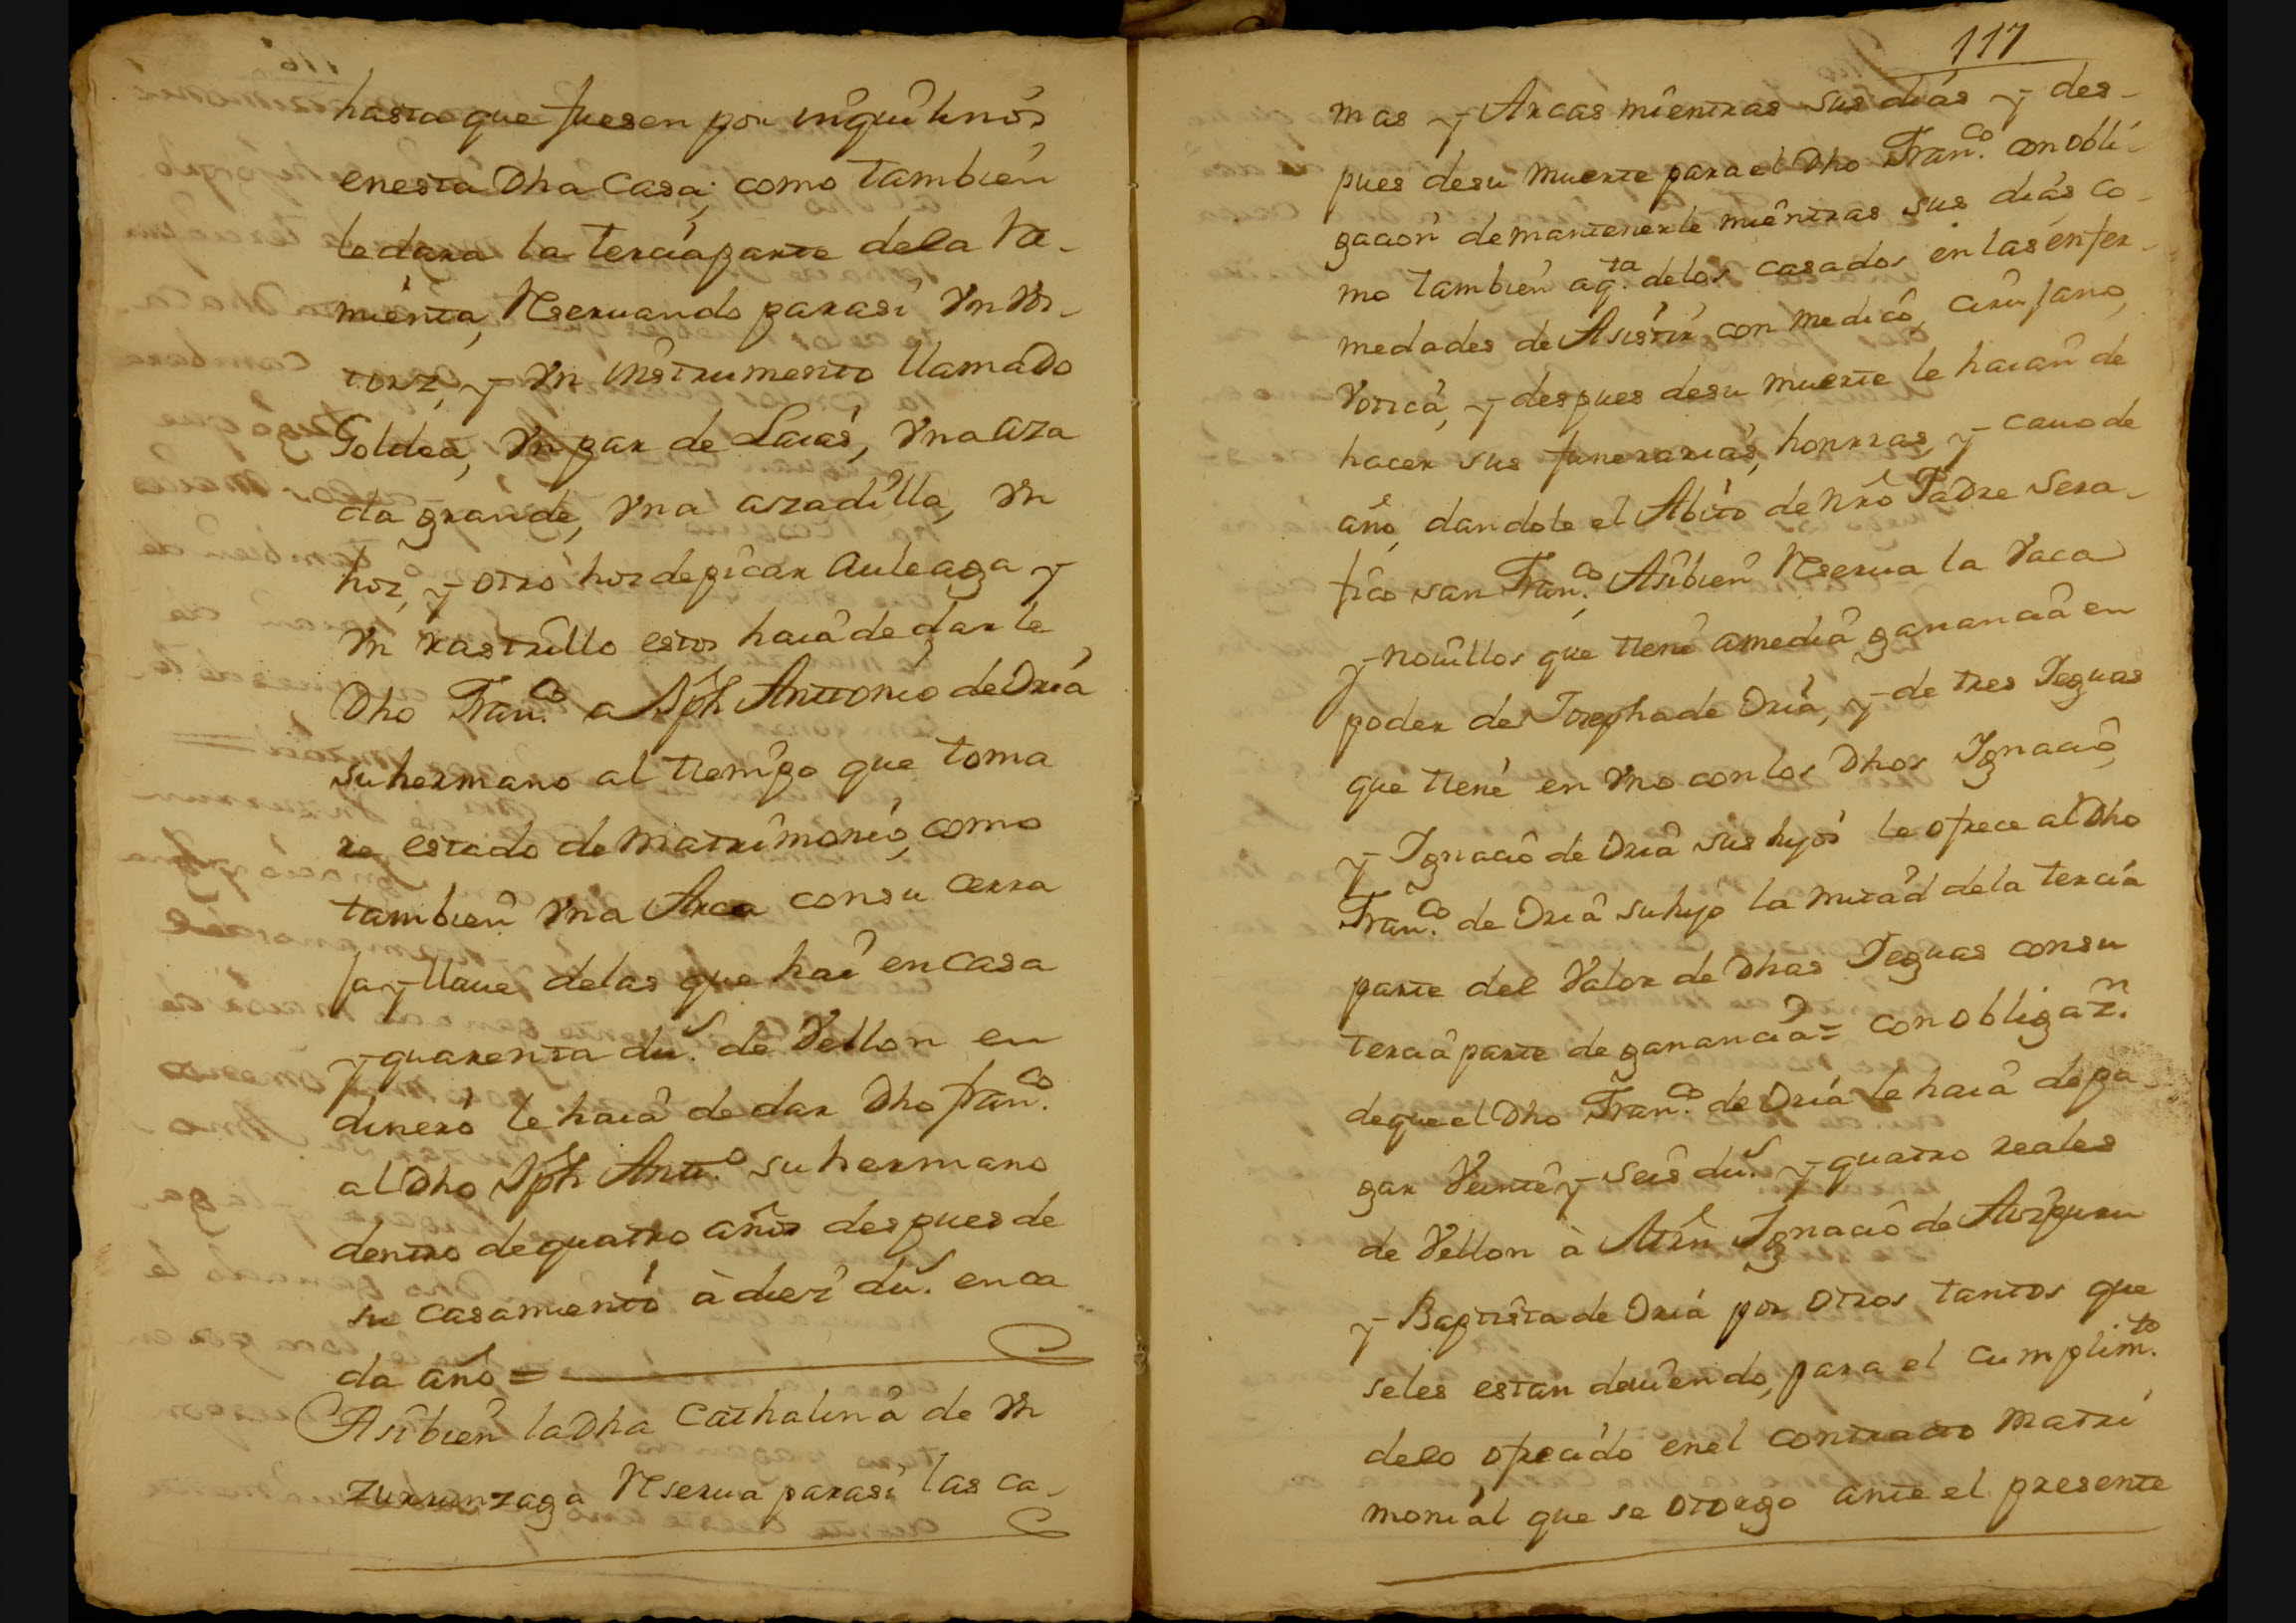 hasta que fuesen por inquilinos
enesta Dha Casa; como tambien
le dara la terciaparte dela he-
mienta, Reseruando parasi Vn Vos-
torz, y Vn instrumento llamado
Goldea, Vn par de Laias, Vna aza
da grande, Vna azadilla, Vn
hoz, y otro hoz depicar auleaga y
Vn rastrillo estos haia de darle
Dho Fran.co a Jph Anttonio de Vria
su hermano al tiempo que toma
re estado de matrimonio, como
tambien Vna Arca consu cerra
ja y llaue delas que hai en casa
y quarenta du.s de Vellon en
dinero le haia de dar Dho fran.co
al Dho Jph Antt.o su hermano
dentro dequatro años despues de
su casamiento à diez du.s en ca
da año =
Asibien la Dha Cathalina de Vn
zurrunzaga Reserua parasi las ca-
117
mas y Arcas mientras sus dias y des-
pues desu muerte para el Dho Fran.co con obli-
gacion de mantenerle mientras sus dias, co-
mo tambien aq.ta delos casados en las enfer-
medades de Asistir con medico, cirujano,
Votica, y despues desu muerte le haian de
hacer sus funerarias, honrras, y cauo de
año, dandole el Abito de Nro Padre Sera-
fico san Fran.co, Asibien Reserua la Vaca
y nouillos que tiene amedia ganancia en
poder de Josepha de Vria, y de tres Yeguas
que tiene en Vno con los Dhos Ygnacio,
y Ygnacio de Vria sus hijos le ofrece al Dho
Fran.co de Vria su hijo la mitad dela tercia
parte del Valor de Dhas Yeguas consu
tercia parte de ganancia = con obligaz.n
deque el Dho Fran.co de Vria le haia depa-
gar Veinte y seis du.s y quatro reales
de Vellon à Mrn Ygnacio de Aizpuru
y Baptista de Vria por otros tantos que
seles estan deuiendo, para el cumplim.to
delo ofrecido enel contracto matri
monial que se otorgo ante el presente